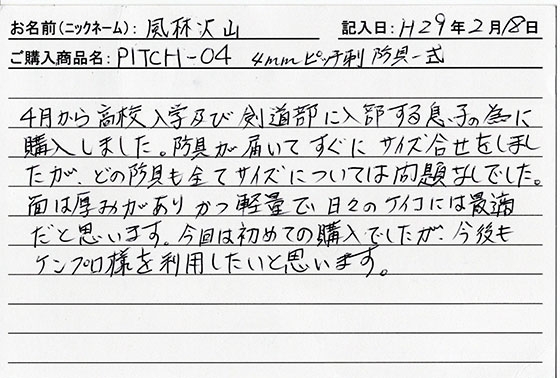 お名前(ニックネーム): 風林火山 記入日: H29年2月18日
ご購入商品名: PITCH-04 4mmピッチ刺 防具一式
4月から高校入学及び剣道部に入部する息子の為に
購入しました。防具が届いてすぐにサイズ合せをしまし
たが、どの防具も全てサイズについては問題なしでした。
面は厚みがありかつ軽量で日々のケイコには最適
だと思います。今回は初めての購入でしたが、今後も
ケンプロ様を利用したいと思います。